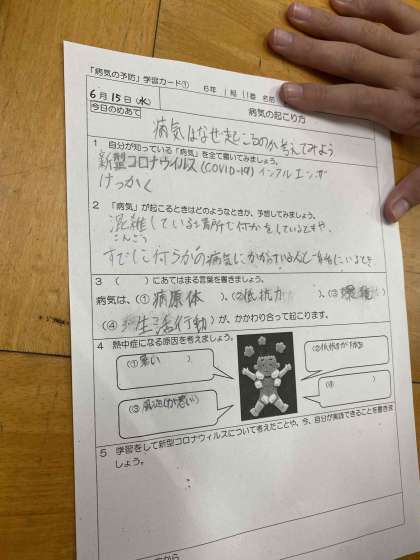 「病気の予防」学習カード① 6年 1組 11番 名前
6月15日(水) 病気の起こり方
今日のめあて
病気はなぜ起こるのか考えてみよう
1 自分が知っている「病気」を全て書いてみましょう。
新型コロナウイルス(COVID-19) インフルエンザ
けっかく
2 「病気」が起こるときはどのようなときか、予想してみましょう。
混雑している場所で何かをしているときや、
こんざつ
すでに何らかの病気にかかっている人と一緒にいるとき
3 ( )にあてはまる言葉を書きましょう。
病気は、(① 病原体 )、(② 抵抗力 )、(③ 環境 )
(④ 生活行動 )が、かかわり合って起こります。
4 熱中症になる原因を考えましょう。
(① 暑い )
(② 抵抗力が
(③ 風通しが悪い)
(④ )
5 学習をして新型コロナウィルスについて考えたことや、今、自分が実践できることを書きま
しょう。